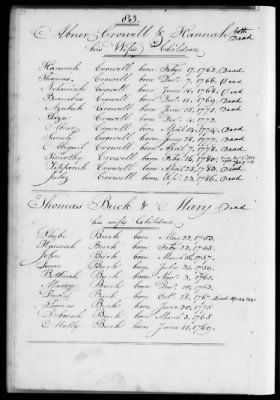 823.
Abner Crowell & Hannah both Dead
his Wife Children
Hannah Crowell born Feby. 17. 1762. Dead
Thomas Crowell born Decr. 7. 1766. Dead
Nehemiah Crowell born June 14. 1768. Dead
Barnabas Crowell born Decr. 11. 1769. Dead
Azubah Crowell born June 1771. Dead
Crowell born Decr. 4. 1772.
Abner Crowell born April 14. 1774. Dead
Crowell born June 1776. Dead
Abigail Crowell born April 7. 1778. Dead
Timothy Crowell born Feby. 16. 1780.
Zipporah Crowell born April 28. 1783. Dead
Crowell born 23. 1786. Dead
Thomas Buck & Mary Dead
his wife Children
Phebe Buck born May 22. 1753.
Hannah Buck born Feby. 22. 1755.
John Buck born March 15. 1757.
Isaac Buck born July 31. 1760.
Bethiah Buck born Novr. 3. 1761.
Marcy Buck born Decr. 10. 1763.
Buck born Octr. 28. Dead
Thomas Buck born June 30.
Deborah Buck born March 3. 1768
Molly Buck born June 11. 1769.